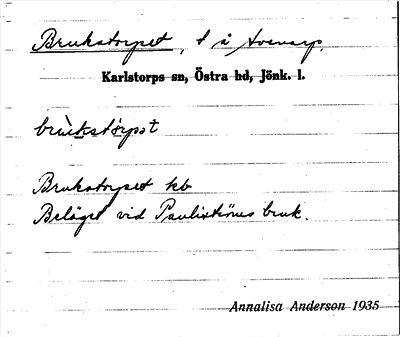 Brukstorpet, t å
Karlstorps sn, Östra hd, Jönk. l.
brùkstórpat
Brukstorpet kb
Beläget vid Pauliströms bruk.
Annalisa Anderson 1935